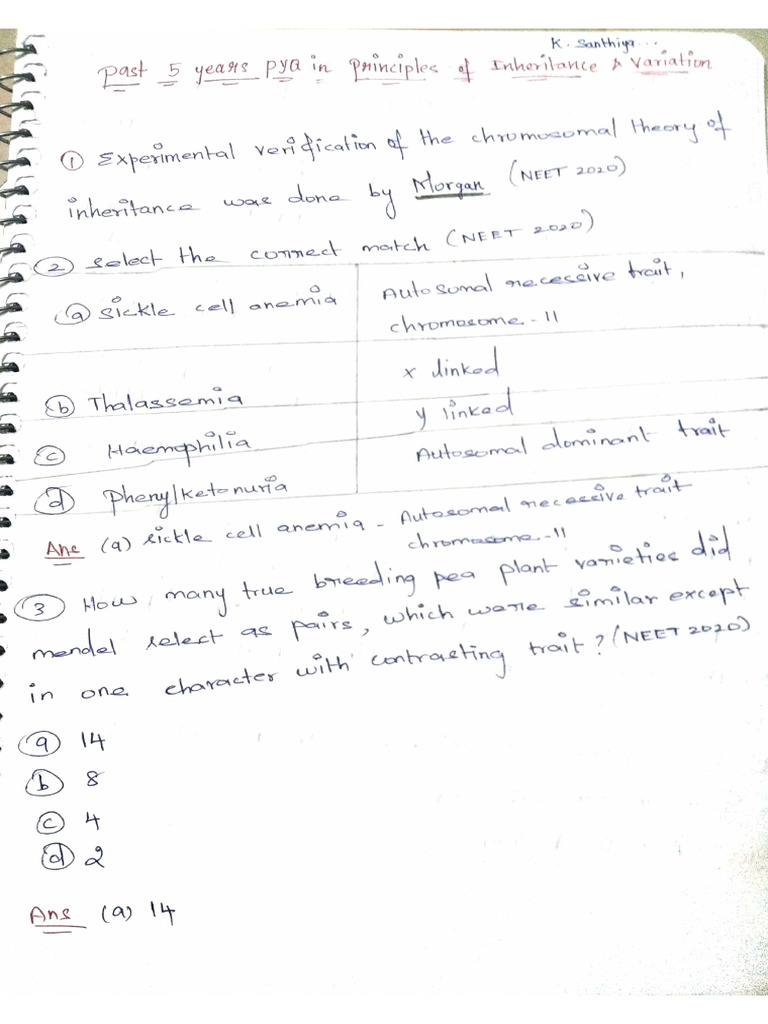 K. Santhiya...
Past 5 years PYQ in Principles of Inheritance & Variation
① Experimental verification of the chromosomal theory of
inheritance was done by Morgan (NEET 2020)
② select the correct match (NEET 2020)
ⓐ Sickle cell anemia
Autosomal recessive trait,
chromosome - 11
x linked
ⓑ Thalassemia
y linked
ⓒ Haemophilia
Autosomal dominant trait
ⓓ Phenylketonuria
Ans (a) sickle cell anemia - Autosomal recessive trait
chromosome - 11
③ How many true breeding pea plant varieties did
mendel select as pairs, which were similar except
in one character with contrasting trait? (NEET 2020)
ⓐ 14
ⓑ 8
ⓒ 4
ⓓ 2
Ans (a) 14